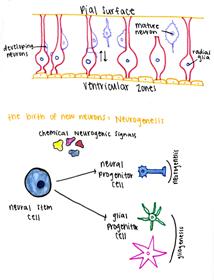 Pial Surface
mature
neuron
developing
neurons
radial
glia
Ventricular Zones
the birth of new neurons: Neurogenesis
chemical Neurogenic Signals
neural
progenitor
cell
neurogenesis
neural stem
cell
glial
progenitor
cell
gliogenesis